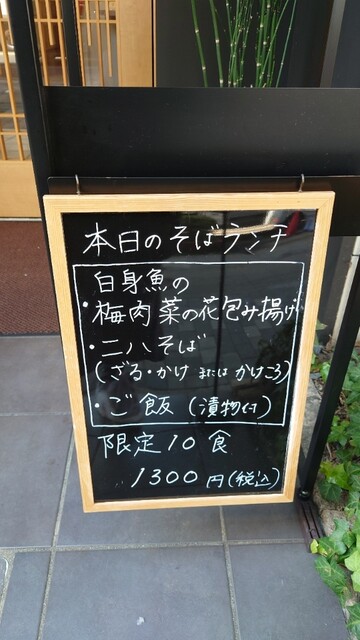 本日のそばランチ
白身魚の
・梅肉菜の花包み揚げ
・二八そば
(ざる・かけ または かけころ)
・ご飯(漬物付)
限定10食
1300円(税込)